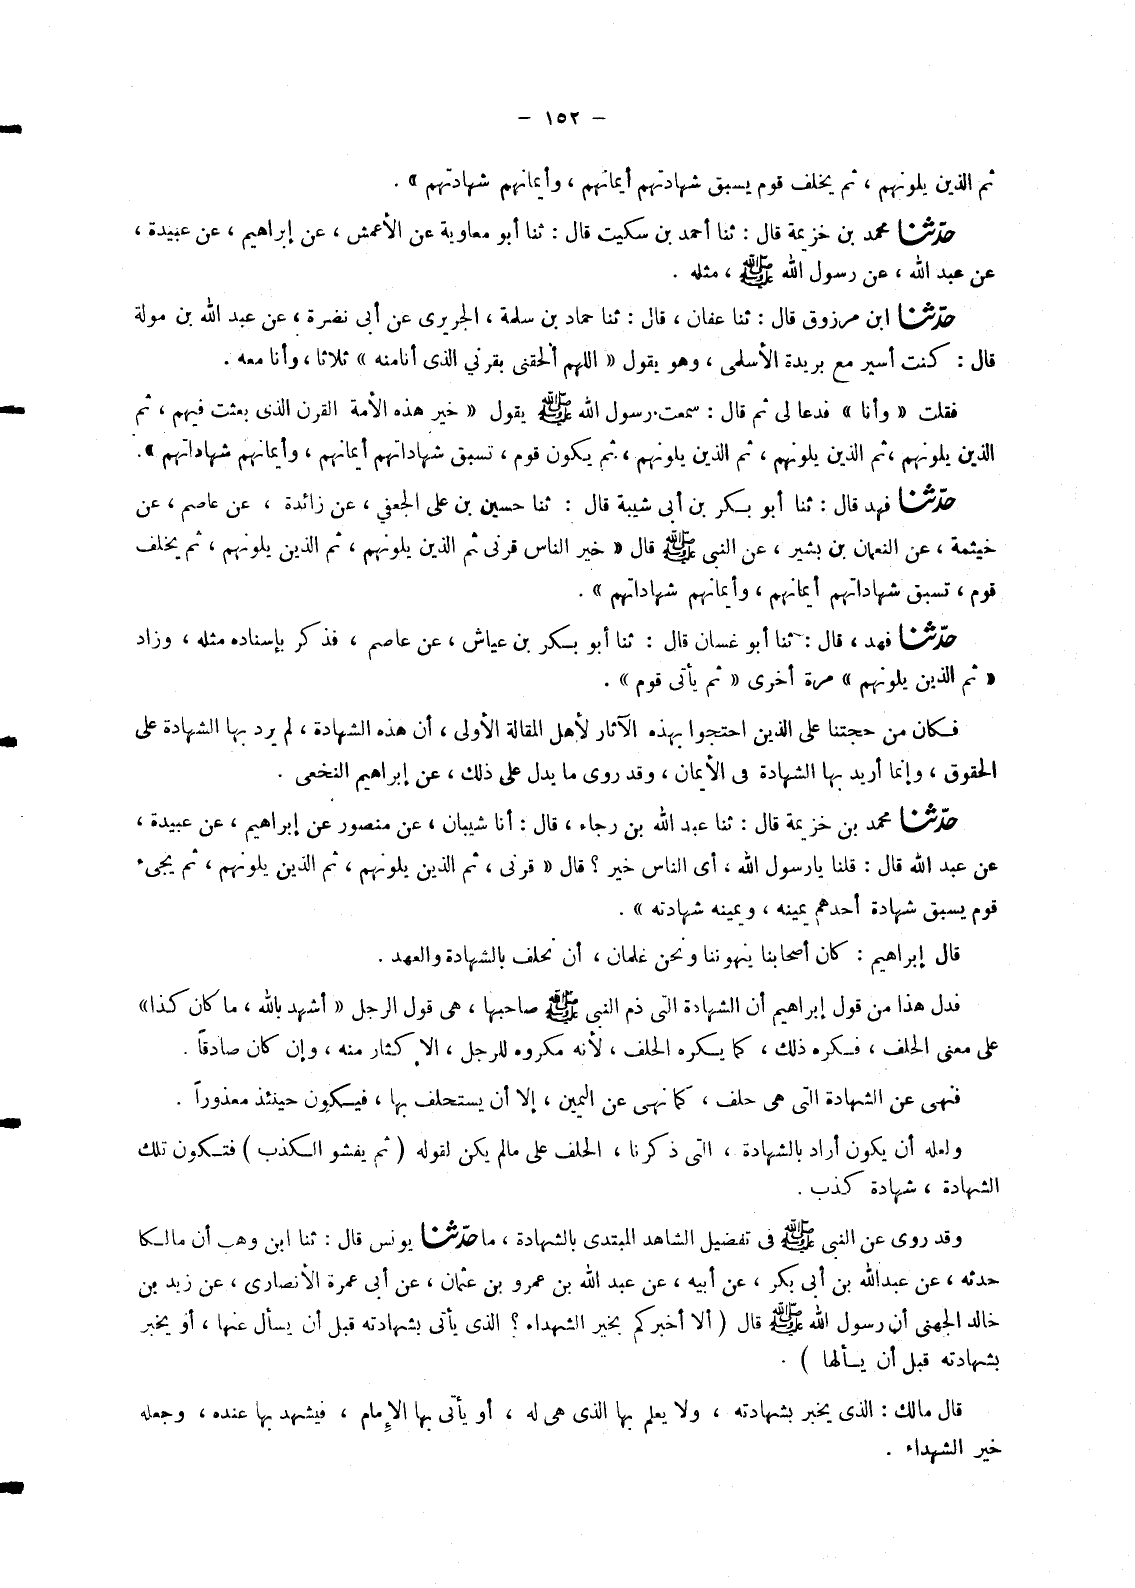 - ١٥٢ -
ثم الذين يلونهم ، ثم يخلف قوم يسبق شهادتهم أيمانهم ، وأيمانهم شهادتهم » .
حدّثنا محمد بن خزيمة قال : ثنا أحمد بن سكيت قال : ثنا أبو معاوية عن الأعمش ، عن إبراهيم ، عن عبيدة ،
عن عبد الله ، عن رسول الله ﷺ ، مثله .
حدّثنا ابن مرزوق قال : ثنا عفان ، قال : ثنا حماد بن سلمة ، الجريرى عن أبى نضرة ، عن عبد الله بن مولة
قال : كنت أسير مع بريدة الأسلمى ، وهو يقول « اللهم ألحقنى بقرني الذى أنامنه » ثلاثا ، وأنا معه .
فقلت « وأنا » فدعا لى ثم قال : سمعت رسول الله ﷺ يقول « خير هذه الأمة القرن الذى بعثت فيهم ، ثم
الذين يلونهم ، ثم الذين يلونهم ، ثم الذين يلونهم ، ثم يكون قوم ، تسبق شهاداتهم أيمانهم ، وأيمانهم شهاداتهم » .
حدّثنا فهد قال : ثنا أبو بكر بن أبى شيبة قال : ثنا حسين بن على الجعفي ، عن زائدة ، عن عاصم ، عن
خيثمة ، عن النعمان بن بشير ، عن النبى ﷺ قال « خير الناس قرنى ثم الذين يلونهم ، ثم الذين يلونهم ، ثم يخلف
قوم ، تسبق شهاداتهم أيمانهم ، وأيمانهم شهاداتهم » .
حدّثنا فهد ، قال : ثنا أبو غسان قال : ثنا أبو بكر بن عياش ، عن عاصم ، فذكر بإسناده مثله ، وزاد
« ثم الذين يلونهم » مرة أخرى « ثم يأتى قوم » .
فكان من حجتنا على الذين احتجوا بهذه الآثار لأهل المقالة الأولى ، أن هذه الشهادة ، لم يرد بها الشهادة على
الحقوق ، وإنما أريد بها الشهادة فى الأيمان ، وقد روى ما يدل على ذلك ، عن إبراهيم النخعى .
حدّثنا محمد بن خزيمة قال : ثنا عبد الله بن رجاء ، قال : أنا شيبان ، عن منصور عن إبراهيم ، عن عبيدة ،
عن عبد الله قال : قلنا يارسول الله ، أى الناس خير ؟ قال « قرنى ، ثم الذين يلونهم ، ثم الذين يلونهم ، ثم يجىء
قوم يسبق شهادة أحدهم يمينه ، ويمينه شهادته » .
قال إبراهيم : كان أصحابنا ينهوننا ونحن غلمان ، أن نحلف بالشهادة والعهد .
فدل هذا من قول إبراهيم أن الشهادة التى ذم النبى ﷺ صاحبها ، هى قول الرجل « أشهد بالله ، ما كان كذا »
على معنى الحلف ، فكره ذلك ، كما يكره الحلف ، لأنه مكروه للرجل ، الإكثار منه ، وإن كان صادقاً .
فنهى عن الشهادة التى هى حلف ، كما نهى عن اليمين ، إلا أن يستحلف بها ، فيكون حينئذ معذوراً .
ولعله أن يكون أراد بالشهادة ، التى ذكرنا ، الحلف على مالم يكن لقوله ( ثم يفشو الكذب ) فتكون تلك
الشهادة ، شهادة كذب .
وقد روى عن النبى ﷺ فى تفضيل الشاهد المبتدى بالشهادة ، ما حدّثنا يونس قال : ثنا ابن وهب أن مالكا
حدثه ، عن عبدالله بن أبى بكر ، عن أبيه ، عن عبد الله بن عمرو بن عثمان ، عن أبى عمرة الأنصارى ، عن زيد بن
خالد الجهنى أن رسول الله ﷺ قال ( ألا أخبركم بخير الشهداء ؟ الذى يأتى بشهادته قبل أن يسأل عنها ، أو يخبر
بشهادته قبل أن يسألها ) .
قال مالك : الذى يخبر بشهادته ، ولا يعلم بها الذى هى له ، أو يأتى بها الإمام ، فيشهد بها عنده ، وجعله
خير الشهداء .